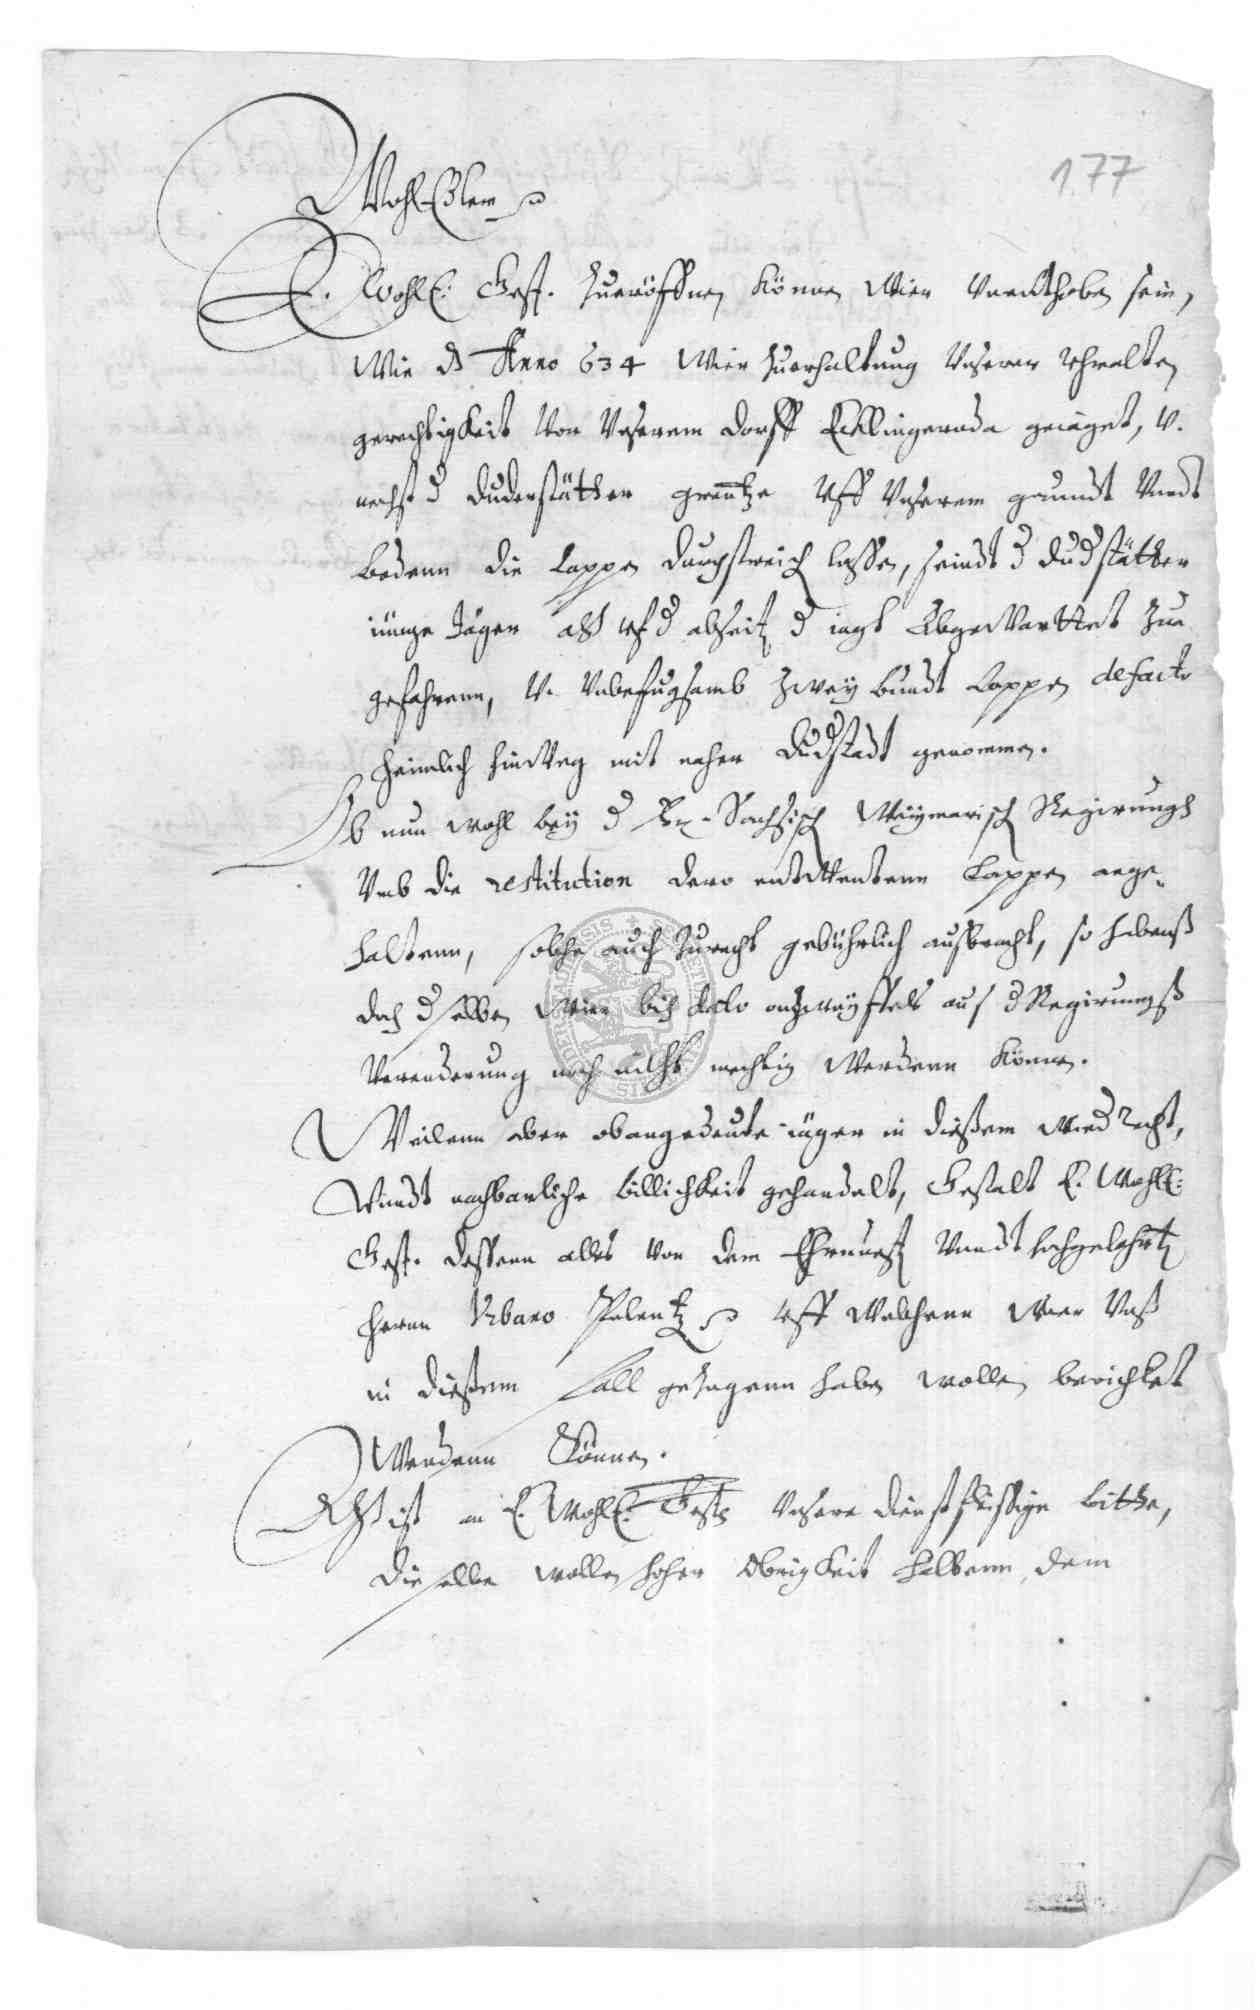 177
WohlEdler
E. WohlE: Gest. zueröffnen können Wier Unentthoben sein,
Wie d Anno 634 Wier zuerhaltung Unserer uhralten
gerechtigkeit Von Unserem dorff Ecklingeroda gejaget, V.
nechst d Duderstätter grentze Uff Unserem grundt Undt
bodenn die Lappen durchstreich lassen, seindt d Dudstätter
iunge Jäger alß uf d abseit d jagt Abgewarttet zue
gefahrenn, V. Unbefugsamb zwey bundt Lappen de facto
heimlich hinweg mit nacher Dudstadt genommen.
Ob nun wohl bey d Sachsisch Weymarisch Regirungh
Umb die restitution dero entwentenn Lappen ange-
haltenn, solche auch zurecht gebührlich außbracht, so habenß
doch dselben Wier biß dato ausß d Regirungß
Verenderung noch nicht mechtig Werdenn können.
Weilenn aber obangedeute jäger in dießem wied Recht,
Undt nachbarliche billichkeit gehandelt, Gestalt E. WohlE:
Gest. dessenn alles von dem Ehrnvest Undt hochgelahrt
Herrn Urbano uff Welchenn Wier Unß
in dießem fall gezogenn haben wollen berichtet
Werdenn Können.
Alß ist an E. WohlE: Gest. Unsere dienstfleissige bitte,
dieselbe wollen hoher Obrigkeit halbenn, dem